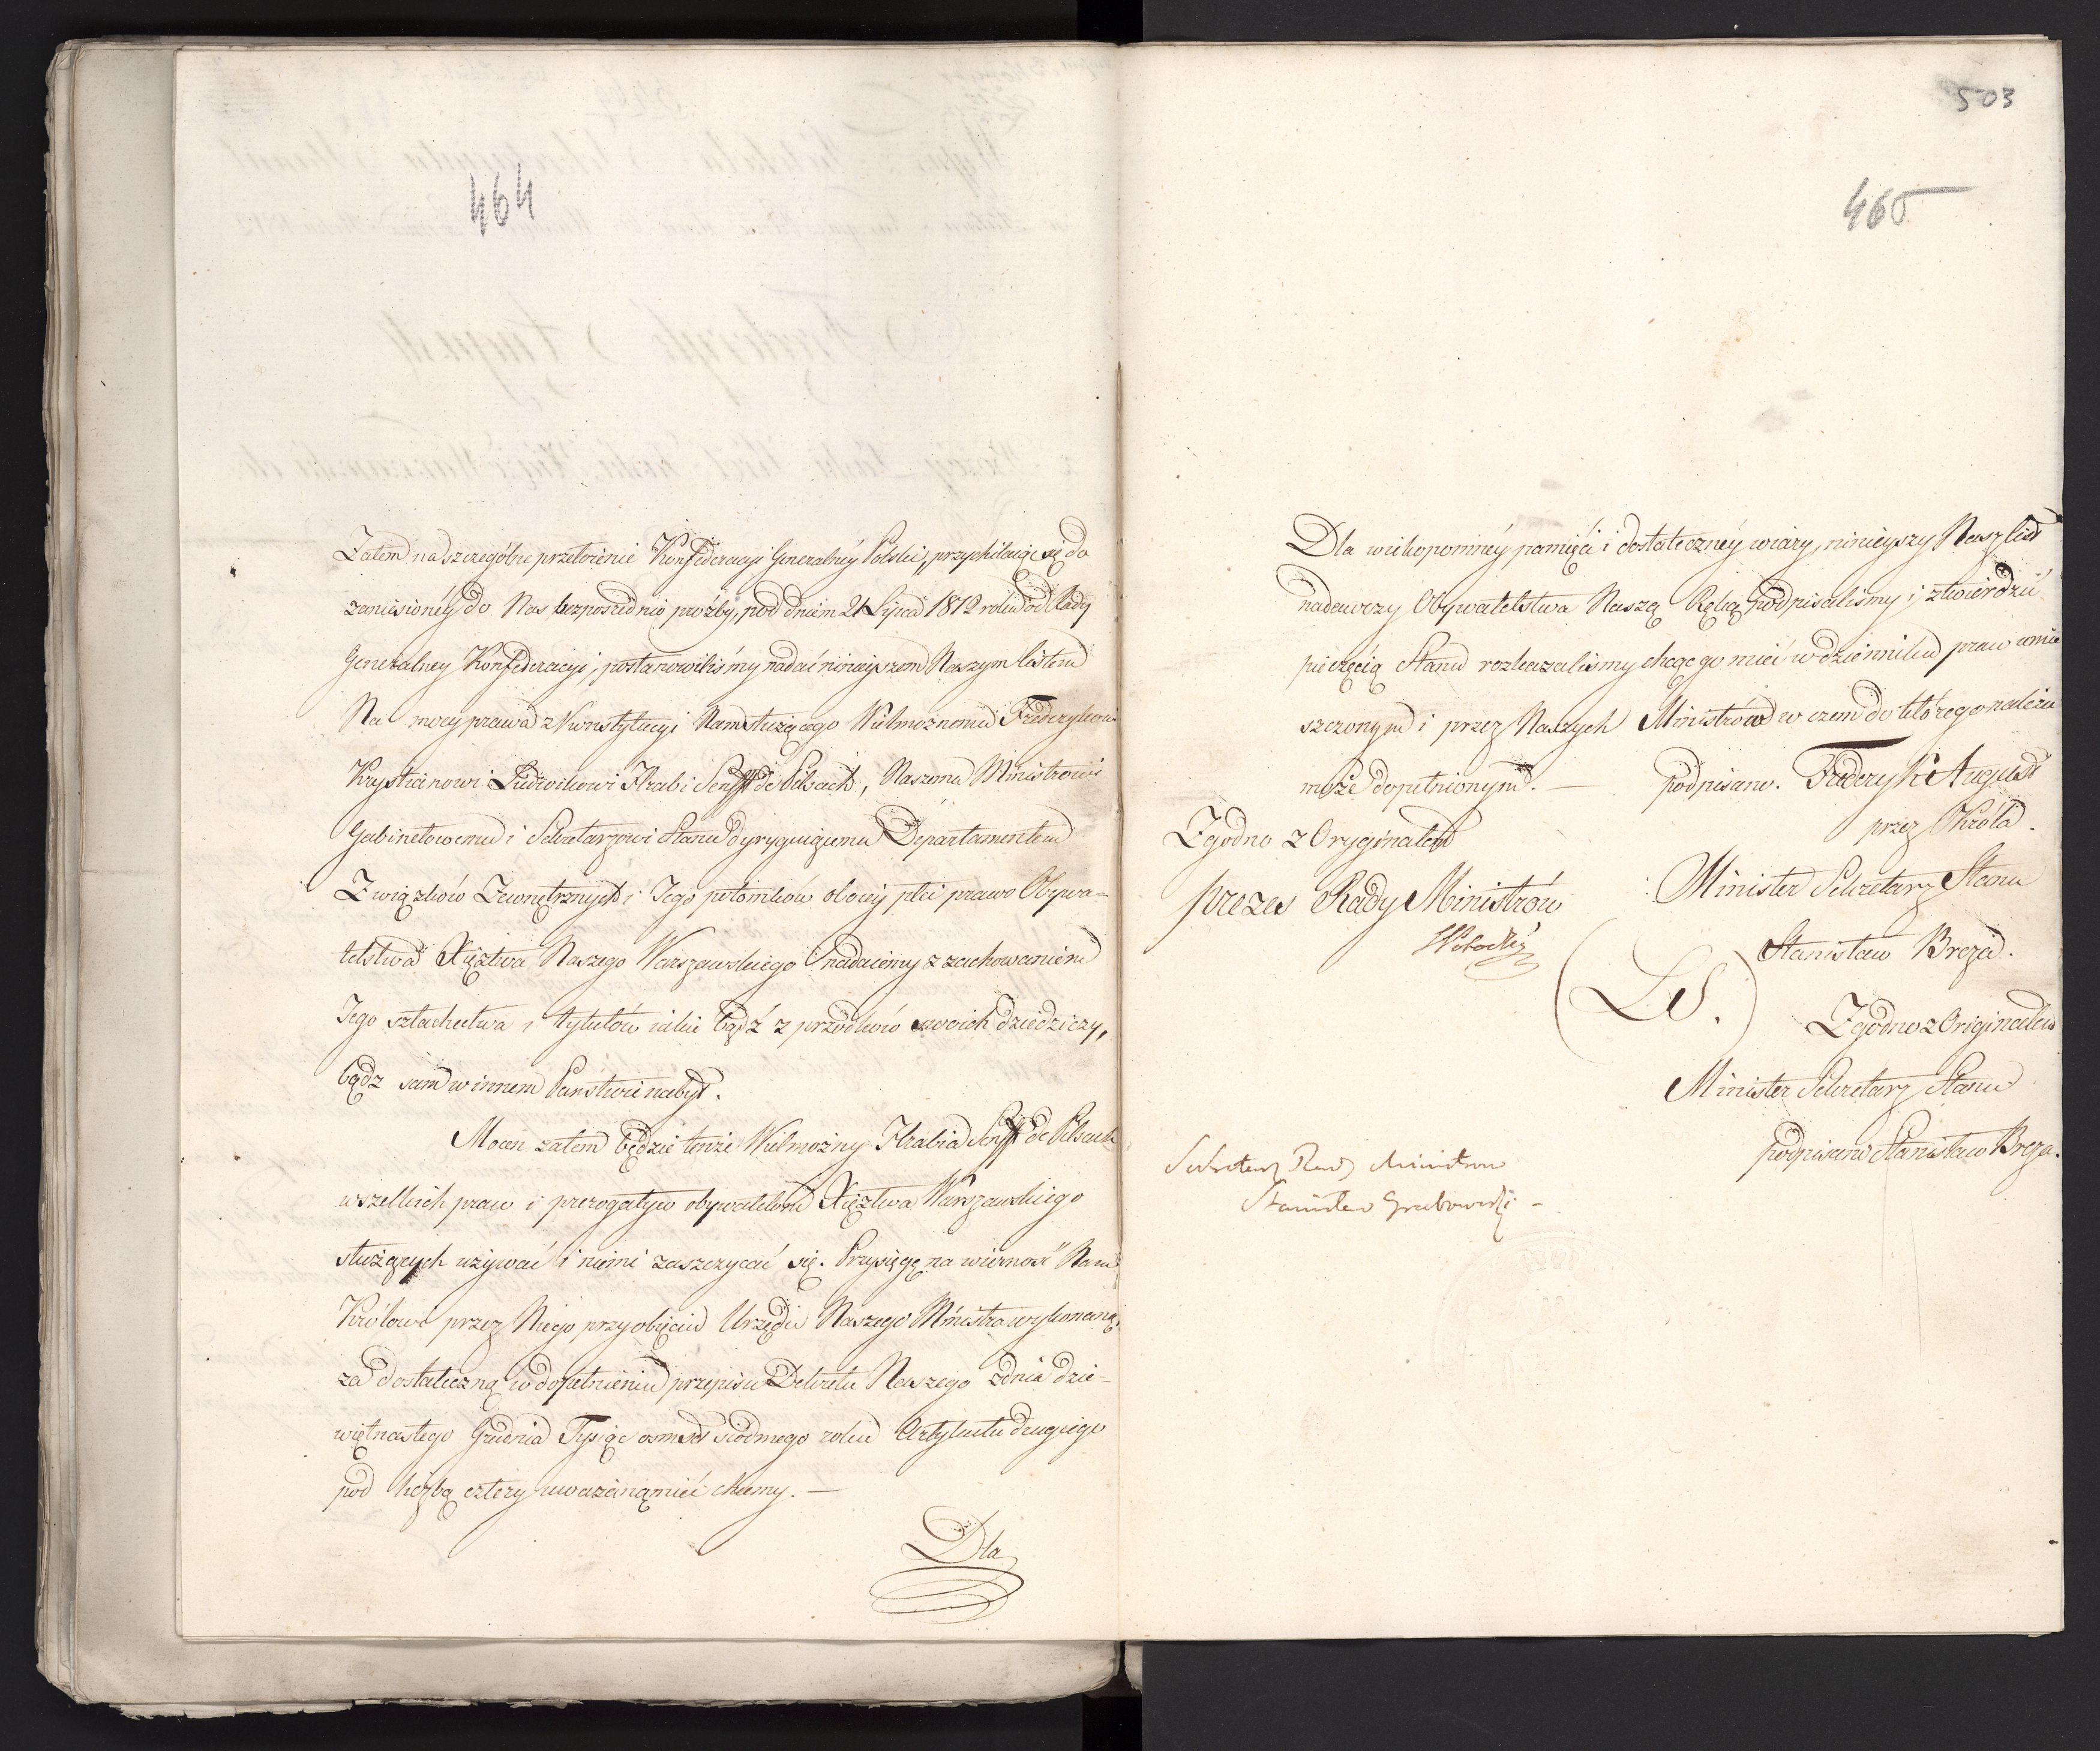 464
Zatem na szczególne przełożenie Konfederacyi Generalnéy Polski, przychilaiąc się do
zaniesionéy do Nas bezpośrednio proźby, pod dniem 21 Lipca 1812 roku od Rady
Generalney Konfederacyi, postanowiliśmy nadać ninieyszem Naszym listem
Na mocy prawa z Konstytucyi Nam służącego Wielmożnemu Friderykowi
Krystianowi Ludwikowi Hrabi Senfft de Pilsach, Naszemu Ministrowi
Gabinetowemu i Sekretarzowi Stanu dyryguiącemu Departamentem
Związków Zewnętrznych i Jego potomków oboiey płci prawo Obywa-
telstwa Xięztwa Naszego Warszawskiego nadaiemy z zachowaniem
Jego szlachectwa i tytułów iakie bądź z przodków swoich dziedziczy,
bądz sam w innem Państwie nabył.
Mocen zatem będzie tenże Wielmożny Hrabia Senfft de Pilsach
wszelkich praw i prerogatyw obywatelom Xięztwa Warszawskiego
służących używać i niemi zaszczycać się. Przysięgę na wierność Nam
Królowi przez Niego przy obięciu Urzędu Naszego Ministra wykonaną,
za dostateczną w dopełnieniu przepisu Dekretu Naszego z dnia dzie-
więtnastego Grudnia Tysiąc osmset siódmego roku Artykułu drugiego
pod liczbą cztery uważaną mieć chcemy. —
Dla
503
465
Dla wiekopomnéy pamięci i dostateczney wiary, ninieyszy Nasz list
nadawczy Obywatelstwa Naszą Ręką podpisaliśmy i ztwierdzić
pieczęcią Stanu rozkazaliśmy chcąc go mieć w dzienniku praw umie
szczonym i przez Naszych Ministrów w czem do którego należeć
może dopełnionym. — podpisano. Frideryk August
przez Króla.
Zgodno z Oryginałem
Minister Sekretarz Stanu
Prezes Rady Ministrów
SPotocki
Stanisław Breza.
(LS.)
Zgodno z Originałem
Minister Sekretarz Stanu
podpisano Stanisław Breza.
Sekretarz Rady Ministrow
Stanisław Grabowski -